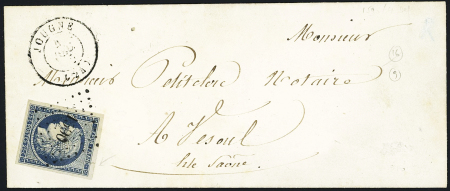 JOUGNE
Monsieur
Monsieur Petitclerc Notaire
A Vesoul
Hte Saône